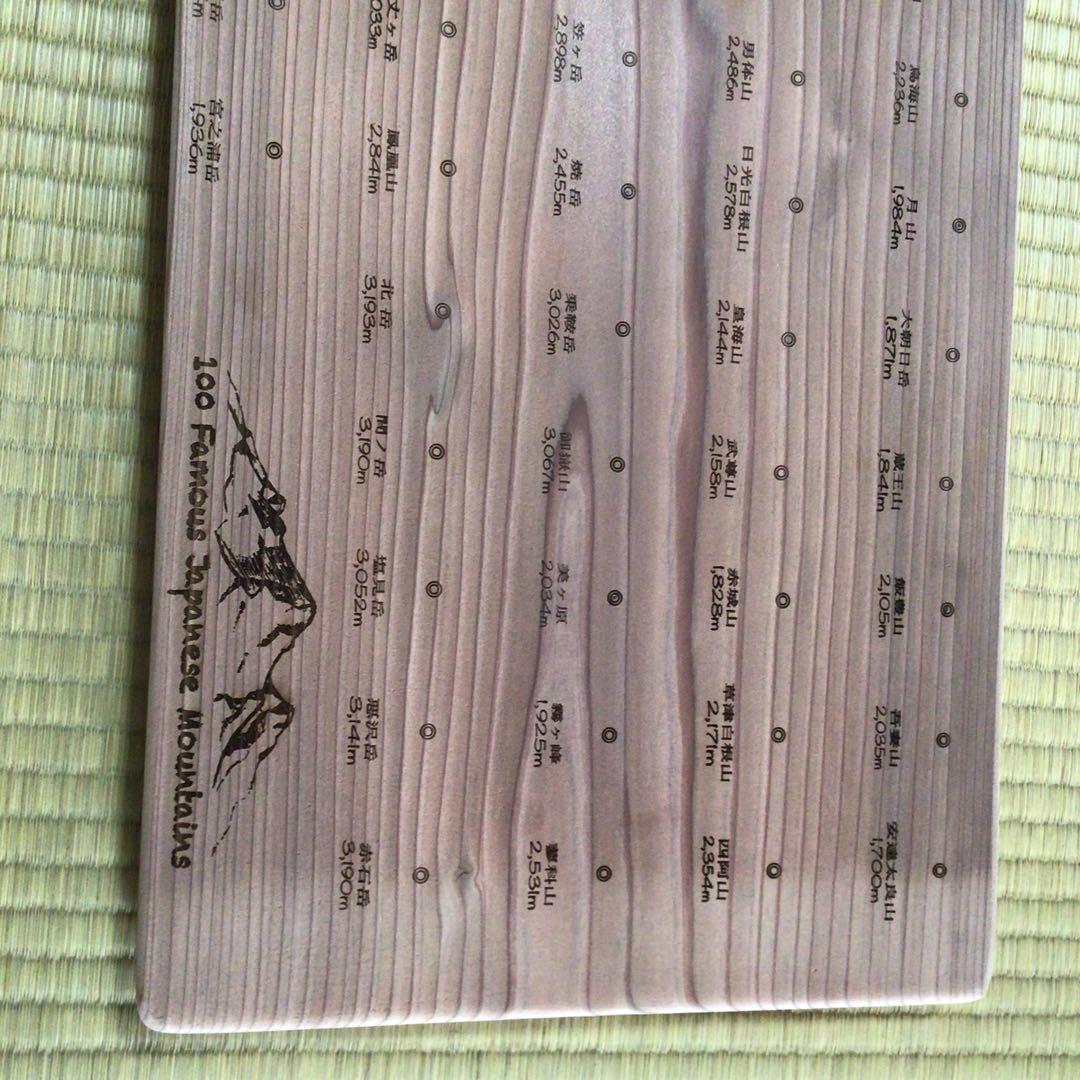 鳥海山
2,236m
月山
1,984m
大朝日岳
1,871m
蔵王山
1,841m
飯豊山
2,105m
吾妻山
2,035m
安達太良山
1,700m
男体山
2,486m
日光白根山
2,578m
皇海山
2,144m
武尊山
2,158m
赤城山
1,828m
草津白根山
2,171m
四阿山
2,354m
笠ヶ岳
2,898m
焼岳
2,455m
乗鞍岳
3,026m
御嶽山
3,067m
美ヶ原
2,034m
霧ヶ峰
1,925m
蓼科山
2,531m
丈ヶ岳
033m
鳳凰山
2,841m
北岳
3,193m
間ノ岳
3,190m
塩見岳
3,052m
悪沢岳
3,141m
赤石岳
3,190m
岳
宮之浦岳
1,936m
100 Famous Japanese Mountains